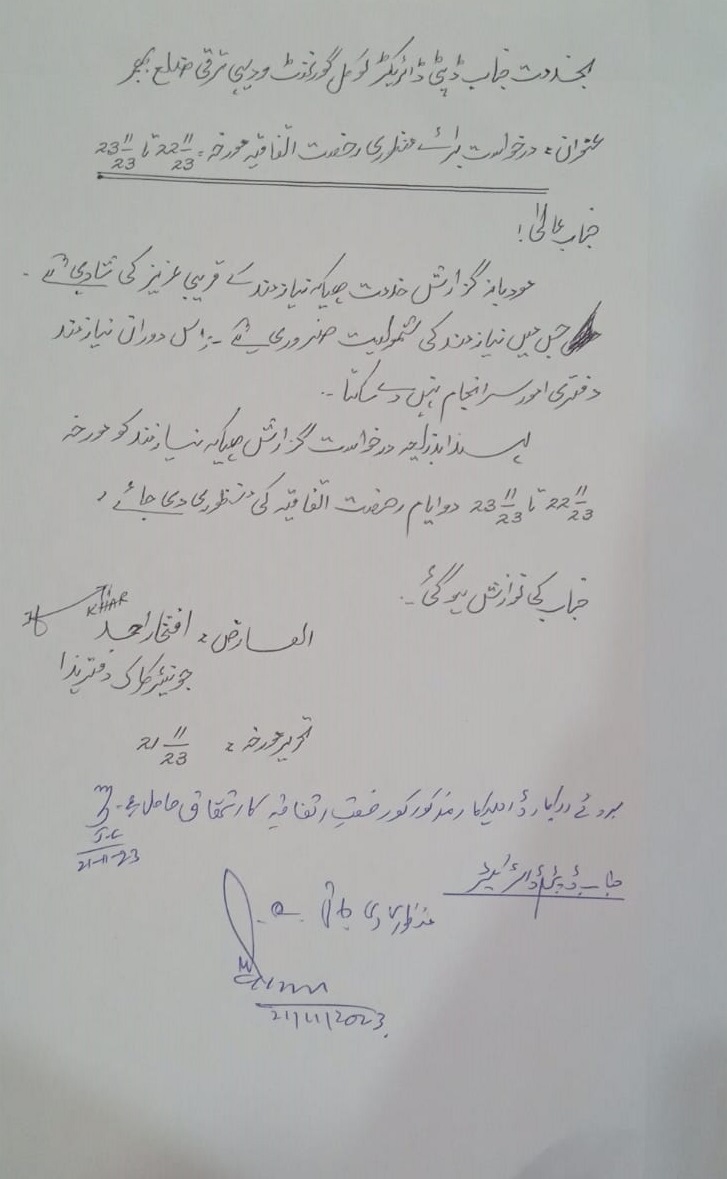 بخدمت جناب ڈپٹی ڈائریکٹر لوکل گورنمنٹ و دیہی ترقی ضلع
عنوان:۔ درخواست برائے منظوری رخصت اتفاقیہ مورخہ 22 11/23 تا 23 11/23
جناب عالیٰ!
مودبانہ گزارش خدمت ہیکہ نیازمند کے قریبی عزیز کی شادی ہے۔
جس میں نیازمند کی شمولیت ضروری ہے۔ اس دوران نیازمند
دفتری امور سرانجام نہیں دے سکتا۔
لہٰذا بذریعہ درخواست گزارش ہیکہ نیازمند کو مورخہ
22 11/23 تا 23 11/23 دو ایام رخصت اتفاقیہ کی منظوری دی جائے،
جناب کی نوازش ہوگی۔
العارض:۔ افتخار احمد
جونیئر کلرک دفتر ہذا
تحریر مورخہ:۔ 21 11/23
بروئے ریکارڈ اہلکار مذکور کو رخصت اتفاقیہ کا استحقاق حاصل ہے۔
J.C
21-11-23
جناب ڈپٹی ڈائریکٹر
منظوری دی جاتی ہے۔
21/11/2023